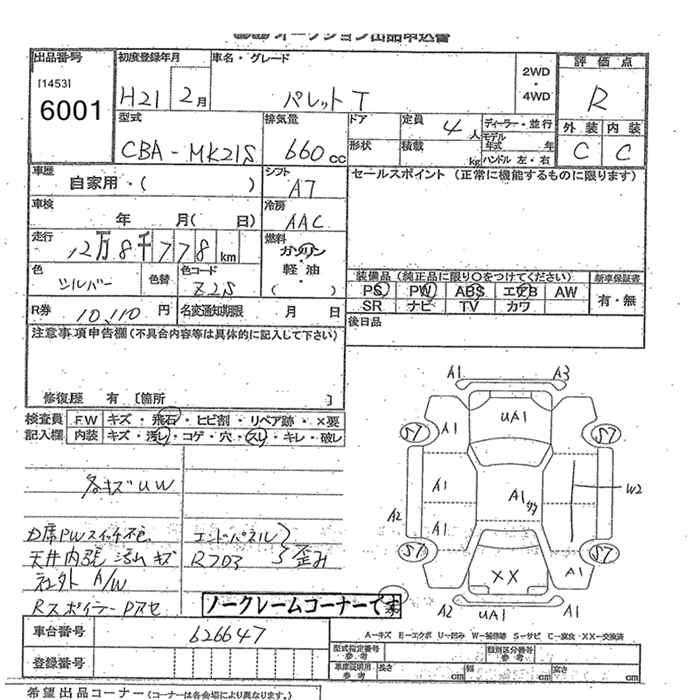 オークション出品申込書
出品番号
[1453]
6001
初度登録年月
H21 2月
車名・グレード
パレット T
2WD
・
4WD
評価点
R
型式
CBA-MK21S
排気量
660cc
ドア
形状
定員
4人
積載
kg
ディーラー・並行
モデル年式 年
ハンドル 左・右
外装 内装
C C
車歴
自家用・( )
シフト
A7
セールスポイント (正常に機能するものに限ります)
車検
年 月( 日)
冷房
AAC
走行
12万8千778km
燃料
ガソリン
・
軽油
・
( )
色
シルバー
色替
色コード
Z2S
装備品 (純正品に限り○をつけてください)
新車保証書
PS PW ABS エアB AW
有・無
SR ナビ TV カワ
R券
10,110円
名変通知期限
月 日
後日品
注意事項申告欄(不具合内容等は具体的に記入して下さい)
修復歴 有 〔箇所 〕
検査員
記入欄
FW キズ・飛石・ヒビ割・リペア跡・×要
内装 キズ・汚れ・コゲ・穴・スレ・キレ・破レ
各キズUW
D席PWスイッチ不
天井内張
社外 A/W
Rスポイラー
エンドパネル
Rフロア
歪み
ノークレームコーナーで
A1 A3
UA1
S7 A1 S7
A1 A1 W2
A2 A1
S7 S7
XX A1
A2 UA1 A1
車台番号
626647
登録番号
A-キズ E-エクボ U-凹み W-補修跡 S-サビ C-腐食・XX-交換済
型式指定番号
参考
類別区分番号
参考
車庫証明用
参考
長さ cm 幅 cm 高さ cm
希望出品コーナー(コーナーは各会場により異なります。)